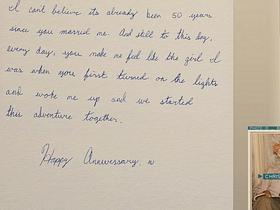 I cant believe its already been 50 years
since you married me. And still to this day,
every day, you make me feel like the girl I
was when you first turned on the lights
and woke me up and we started
this adventure together.
Happy Anniversary,
CHRIS